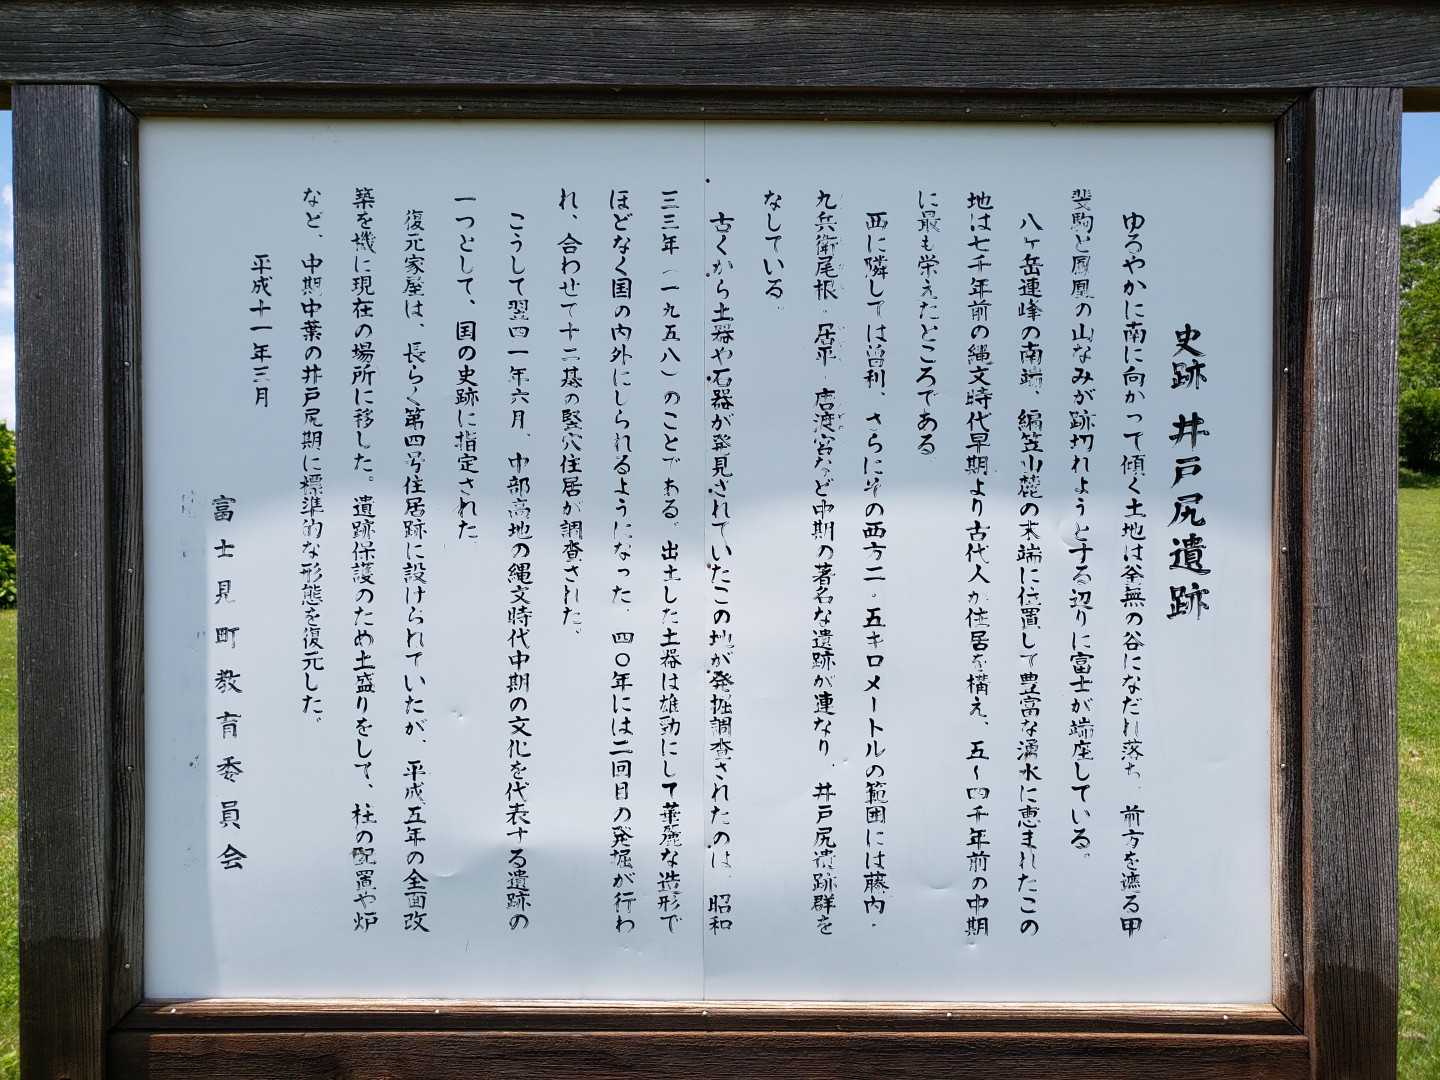 史跡 井戸尻遺跡
ゆるやかに南に向かって傾く土地は釜無の谷になだれ落ち、前方を遮る甲
斐駒と鳳凰の山なみが跡切れようとする辺りに富士が端座している。
八ヶ岳連峰の南端、編笠山麓の末端に位置して豊富な湧水に恵まれたこの
地は七千年前の縄文時代早期より古代人が住居を構え、五〜四千年前の中期
に最も栄えたところである
西に隣しては曽利、さらにその西方二・五キロメートルの範囲には藤内・
九兵衛尾根・居平・唐渡宮など中期の著名な遺跡が連なり、井戸尻遺跡群を
なしている
古くから土器や石器が発見されていたこの地が発掘調査されたのは、昭和
三三年（一九五八）のことである。出土した土器は雄勁にして華麗な造形で
ほどなく国の内外にしられるようになった。四〇年には二回目の発掘が行わ
れ、合わせて十二基の竪穴住居が調査された。
こうして翌四一年六月、中部高地の縄文時代中期の文化を代表する遺跡の
一つとして、国の史跡に指定された
復元家屋は、長らく第四号住居跡に設けられていたが、平成五年の全面改
築を機に現在の場所に移した。遺跡保護のため土盛りをして、柱の配置や炉
など、中期中葉の井戸尻期に標準的な形態を復元した。
平成十一年三月
富士見町教育委員会